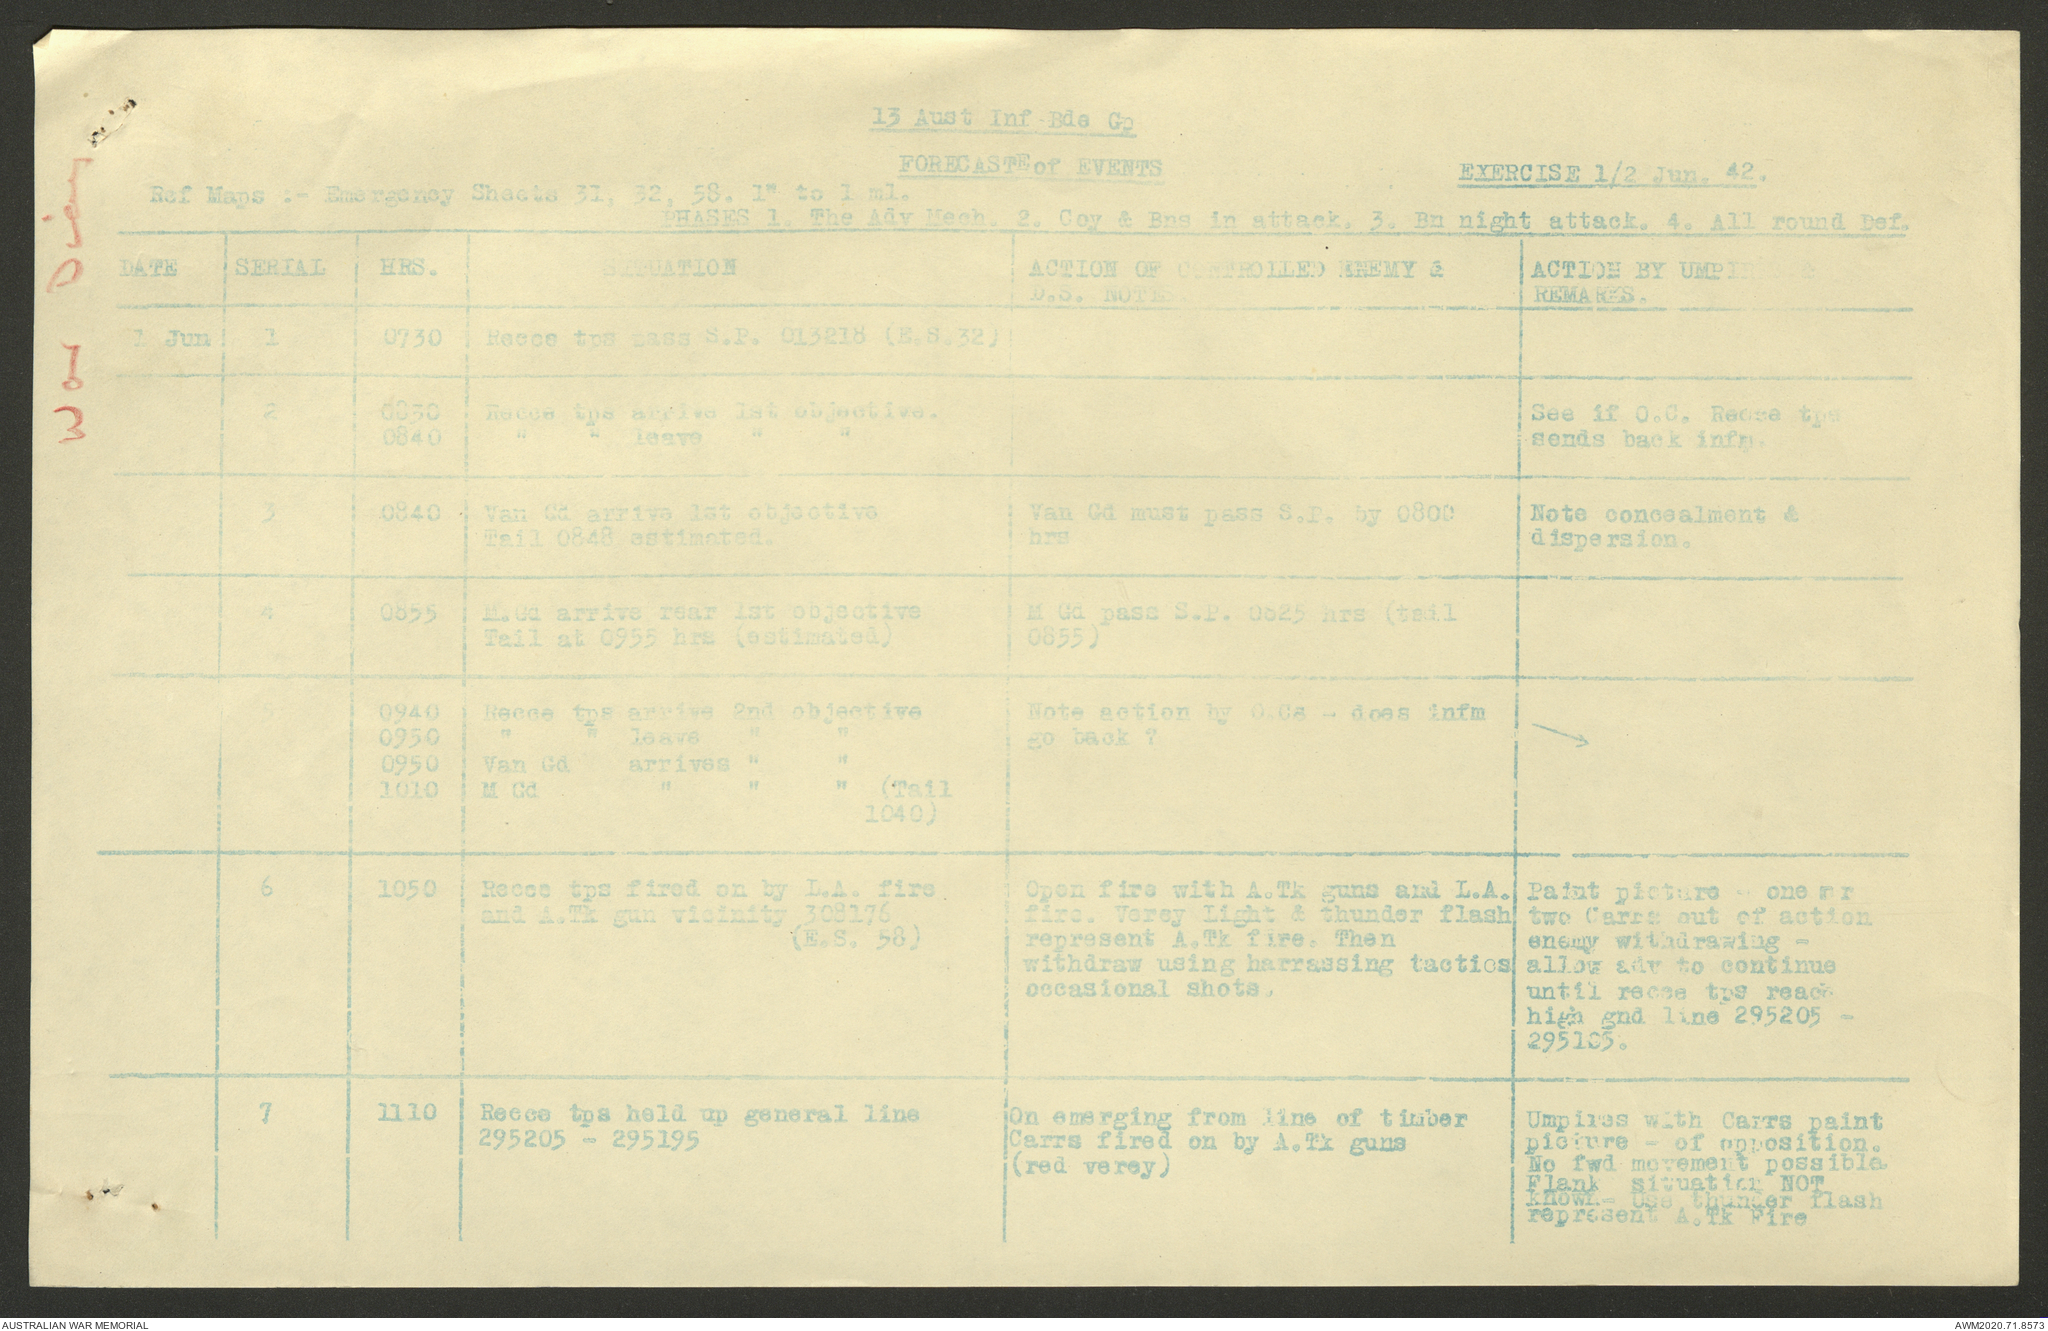 13 Aust Inf Bde Gp
FORECASTE of EVENTS
EXERCISE 1/2 Jun. 42.
Ref Maps :- Emergency Sheets 31, 32, 58. 1" to 1 ml.
PHASES 1. The Adv Mech. 2. Coy & Bns in attack. 3. Bn night attack. 4. All round Def.
DATE SERIAL HRS. SITUATION ACTION OF CONTROLLED ENEMY & D.S. NOTES ACTION BY UMPIRES & REMARKS.
1 Jun 1 0730 Recce tps pass S.P. 013218 (E.S.32)
2 0830 Recce tps arrive 1st objective.
0840 " " leave " "
See if O.C. Recce tps
sends back infm.
3 0840 Van Gd arrive 1st objective
Tail 0848 estimated.
Van Gd must pass S.P. by 0800
hrs
Note concealment &
dispersion.
4 0855 M.Gd arrive rear 1st objective
Tail at 0955 hrs (estimated)
M Gd pass S.P. 0825 hrs (tail
0855)
5 0940 Recce tps arrive 2nd objective
0950 " " leave " "
0950 Van Gd arrives " "
1010 M Gd " " " (Tail
1040)
Note action by O.Cs - does infm
go back ?
6 1050 Recce tps fired on by L.A. fire
and A.Tk gun vicinity 308176
(E.S. 58)
Open fire with A.Tk guns and L.A.
fire. Verey Light & thunder flash
represent A.Tk fire. Then
withdraw using harrassing tactics
occasional shots.
Paint picture - one or
two Carrs out of action
enemy withdrawing -
allow adv to continue
until recce tps reach
high gnd line 295205 -
295195.
7 1110 Recce tps held up general line
295205 - 295195
On emerging from line of timber
Carrs fired on by A.Tk guns
(red verey)
Umpires with Carrs paint
picture - of opposition.
No fwd movement possible
Flank situation NOT
known- Use thunder flash
represent A.Tk Fire
AUSTRALIAN WAR MEMORIAL
AWM2020.71.8573